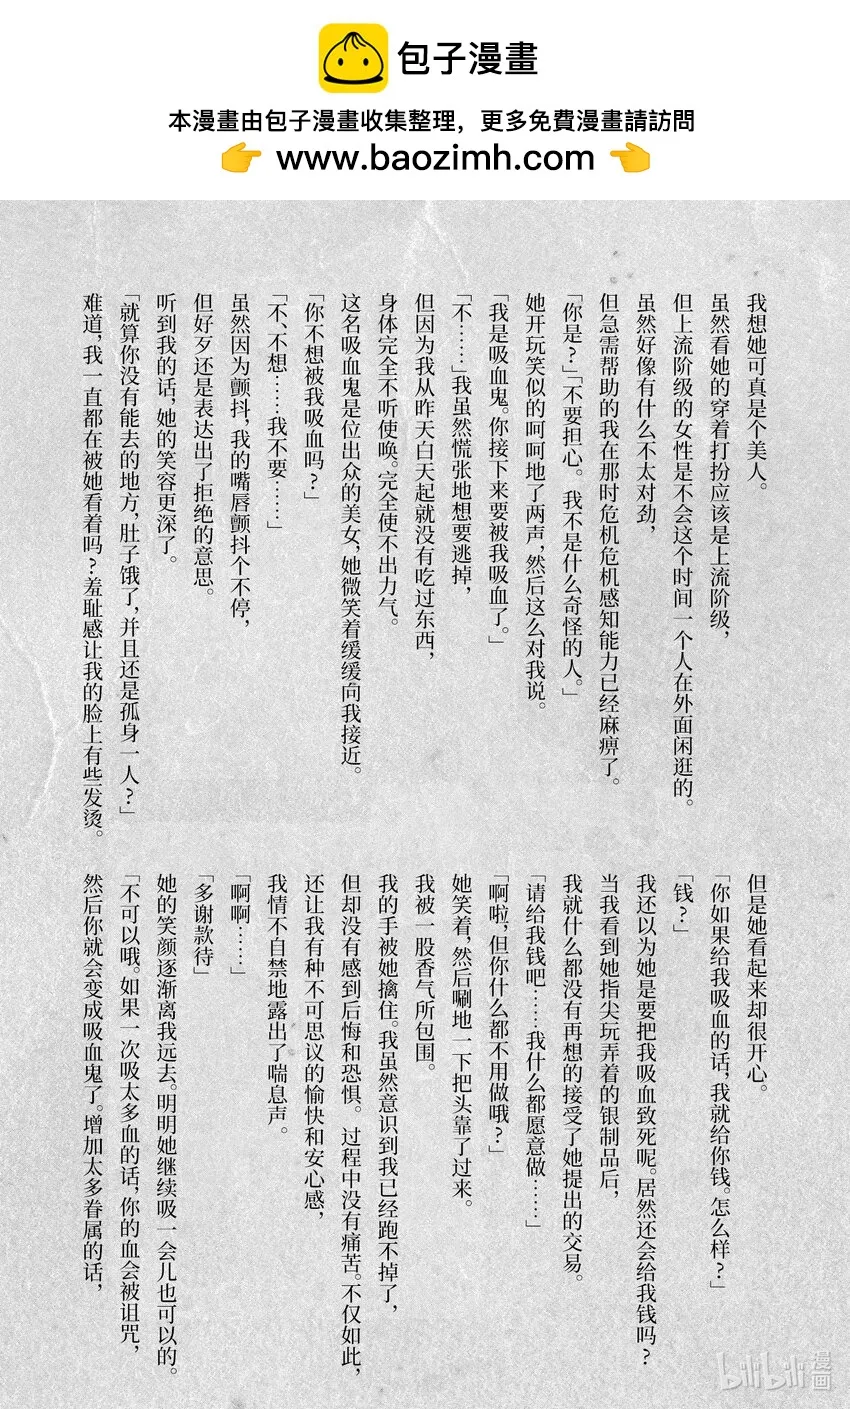 包子漫畫
本漫畫由包子漫畫收集整理，更多免費漫畫請訪問
👉 www.baozimh.com 👈
我想她可真是个美人。
虽然看她的穿着打扮应该是上流阶级，
但上流阶级的女性是不会这个时间一个人在外面闲逛的。
虽然好像有什么不太对劲，
但急需帮助的我在那时危机危机感知能力已经麻痹了。
「你是？」「不要担心。我不是什么奇怪的人。」
她开玩笑似的呵呵地了两声，然后这么对我说。
「我是吸血鬼。你接下来要被我吸血了。」
「不……」我虽然慌张地想要逃掉，
但因为我从昨天白天起就没有吃过东西，
身体完全不听使唤。完全使不出力气。
这名吸血鬼是位出众的美女，她微笑着缓缓向我接近。
「你不想被我吸血吗？」
「不、不想……我不要……」
虽然因为颤抖，我的嘴唇颤抖个不停，
但好歹还是表达出了拒绝的意思。
听到我的话，她的笑容更深了。
「就算你没有能去的地方，肚子饿了，并且还是孤身一人？」
难道，我一直都在被她看着吗？羞耻感让我的脸上有些发烫。
但是她看起来却很开心。
「你如果给我吸血的话，我就给你钱。怎么样？」
「钱？」
我还以为她是要把我吸血致死呢。居然还会给我钱吗？
当我看到她指尖玩弄着的银制品后，
我就什么都没有再想的接受了她提出的交易。
「请给我钱吧……我什么都愿意做……」
「啊啦，但你什么都不用做哦？」
她笑着，然后唰地一下把头靠了过来。
我被一股香气所包围。
我的手被她擒住。我虽然意识到我已经跑不掉了，
但却没有感到后悔和恐惧。过程中没有痛苦。不仅如此，
还让我有种不可思议的愉快和安心感，
我情不自禁地露出了喘息声。
「啊啊……」
「多谢款待」
她的笑颜逐渐离我远去。明明她继续吸一会儿也可以的。
「不可以哦。如果一次吸太多血的话，你的血会被诅咒，
然后你就会变成吸血鬼了。增加太多眷属的话，
bilibili 漫画